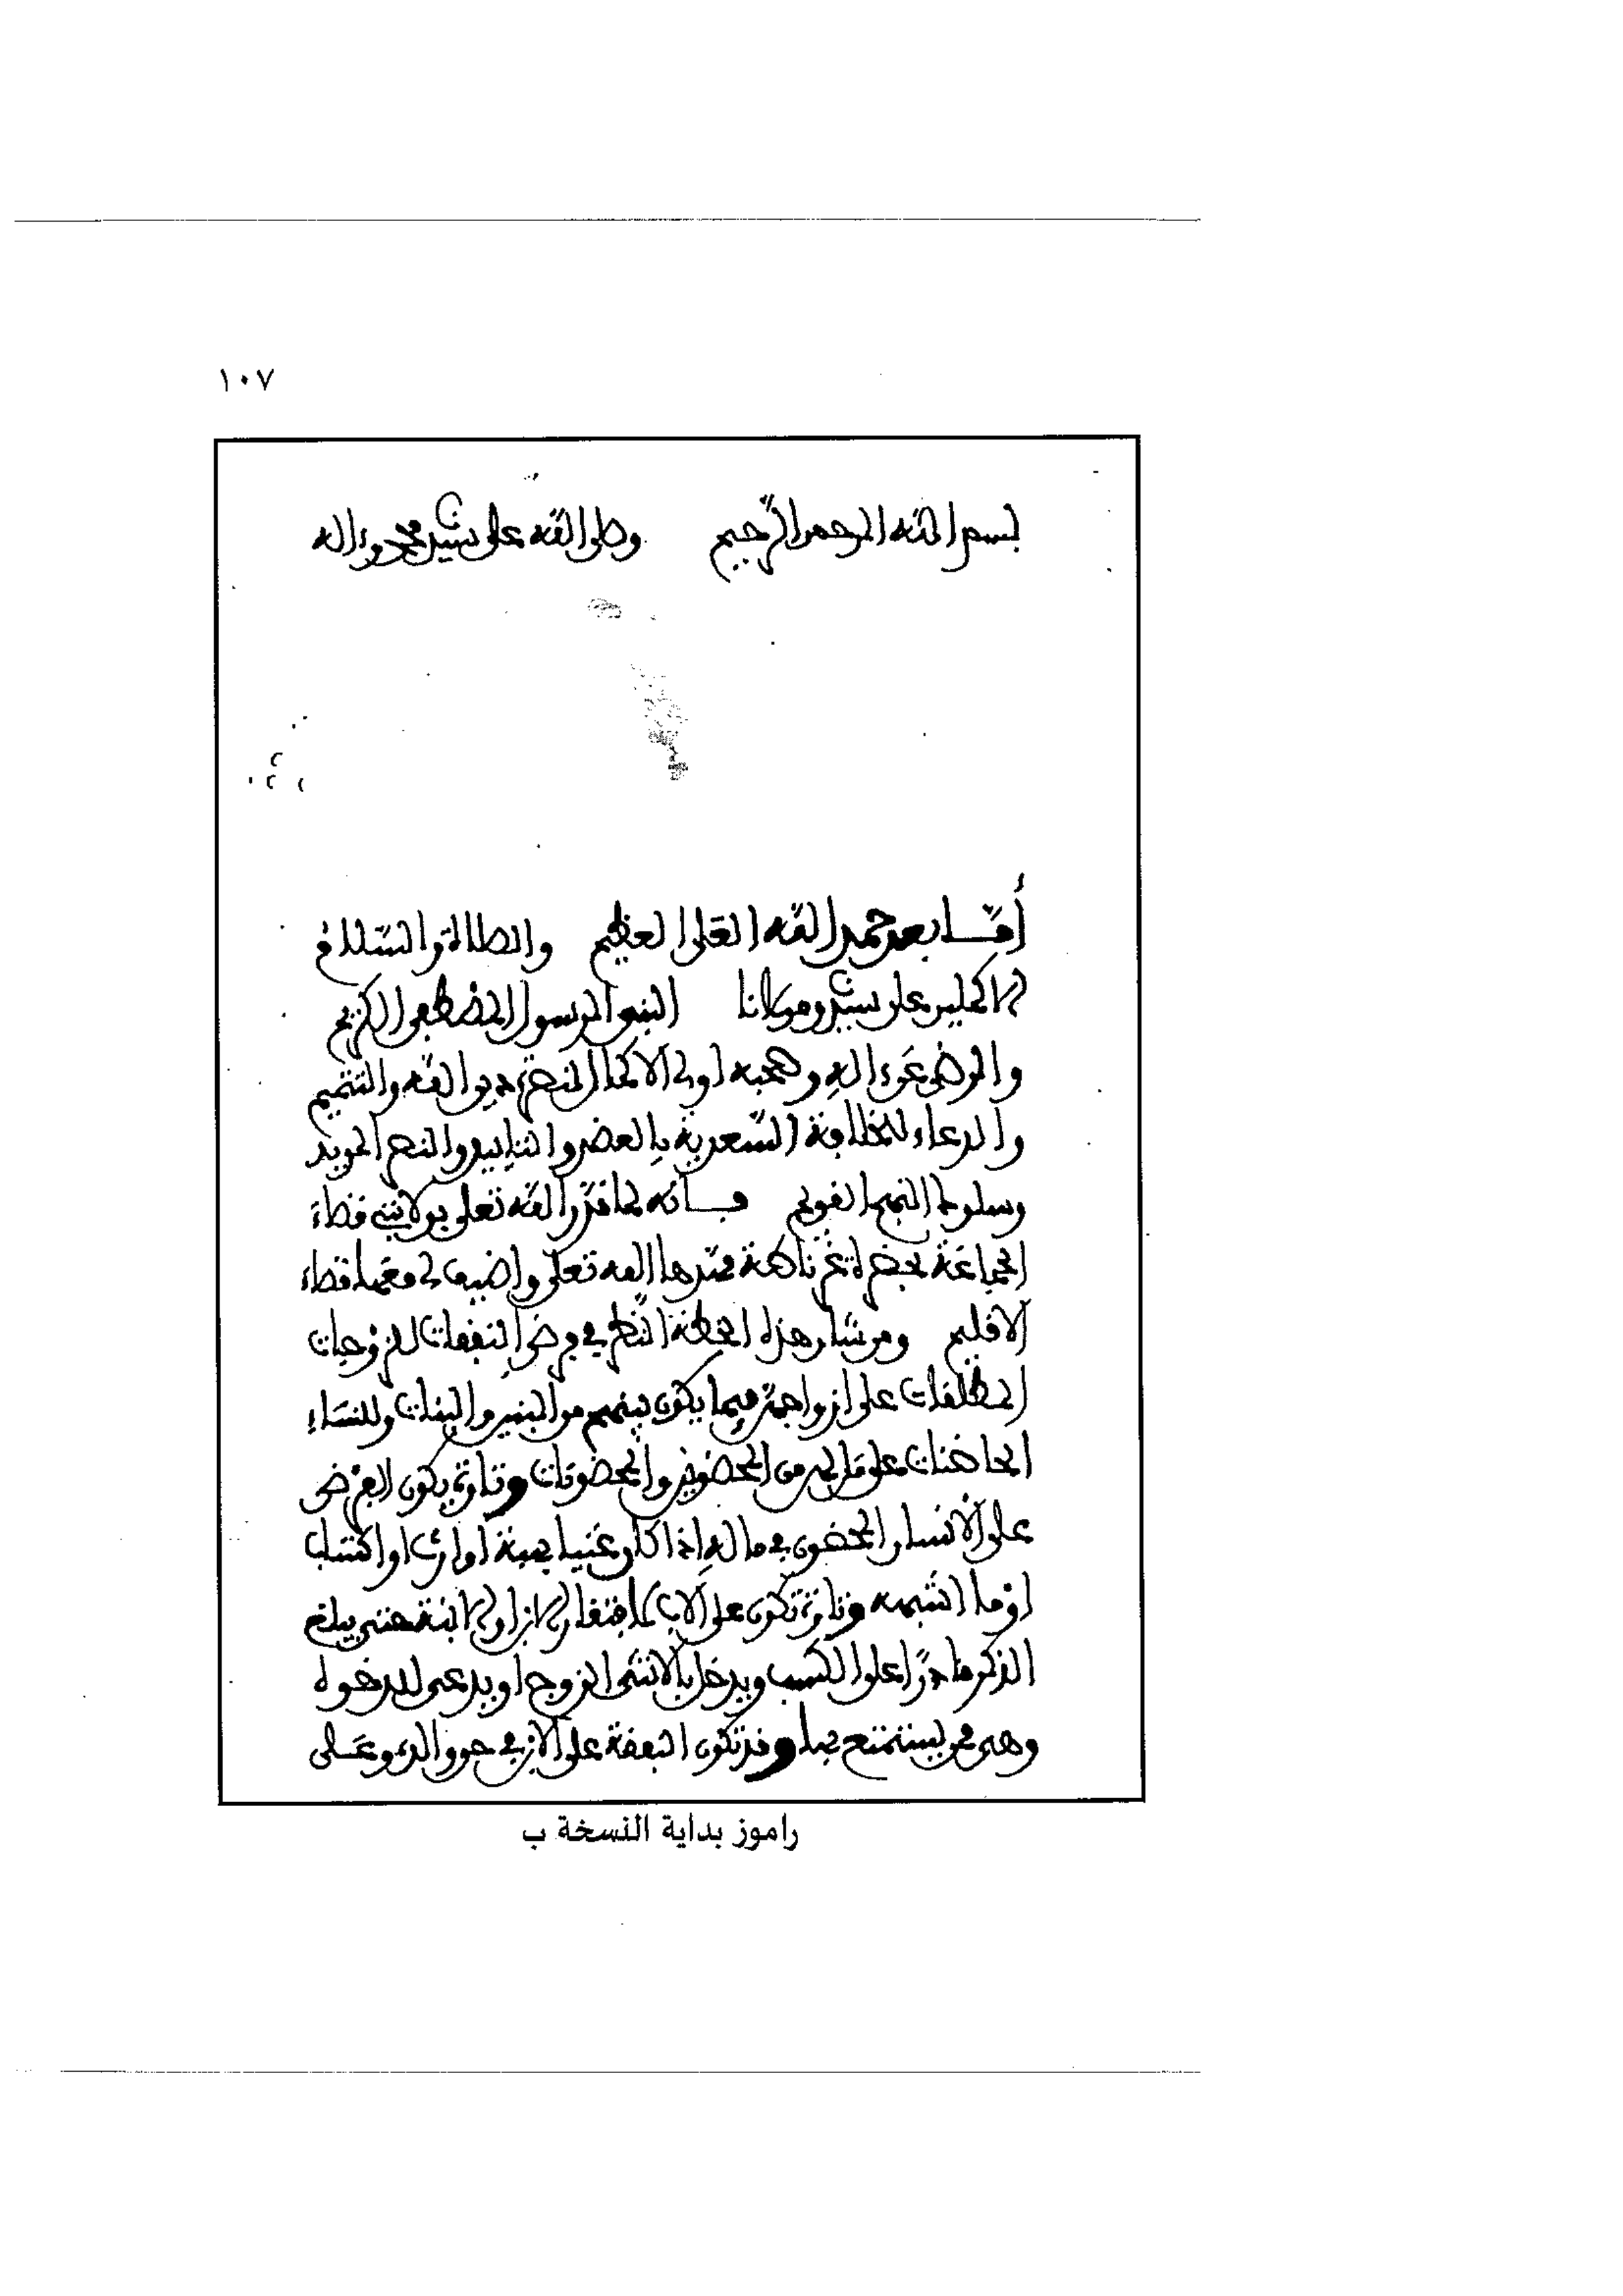 ١٠٧
بسم الله الرحمن الرحيم وصلى الله على سيدنا محمد وءاله
أما بعد حمد الله العلي العظيم والصلاة والسلام
الاكملين على سيدنا ومولانا النبي الرسول المصطفى الكريم
والرضى عن ءاله وصحبه اولى الاكمال لنصرة دين الله والتتميم
والدعاء للخلافة السعدية بالعضد والتاييد والنصر المويد
وسلوك النهج القويم فـانه لما قدر الله تعلى بولايتي قضاء
الجماعة بحضرة مهدها الله تعلى واضيف لي معها قضاء
الاقليم ومن شان هذه الخطة النظر في فرض النفقات للزوجات
المطلقات على ازواجهن فيما يكون بينهم من البنين والبنات وللنساء
الحاضنات على من المحضونين والمحضونات وتارة يكون الفرض
على الانسان المحضون في ماله إذا كان غنيا بهبة او ارث او اكتساب
او ما اشبهه وتارة تكون على الاب لافتقار الابن او الابنة حتى يبلغ
الذكر قادرًا على الكسب ويدخل بالانثى الزوج او يدعى للدخول
وهي ممن يستمتع بها وقد تكون النفقة على الابن في حق والديه وعلى
راموز بداية النسخة ب